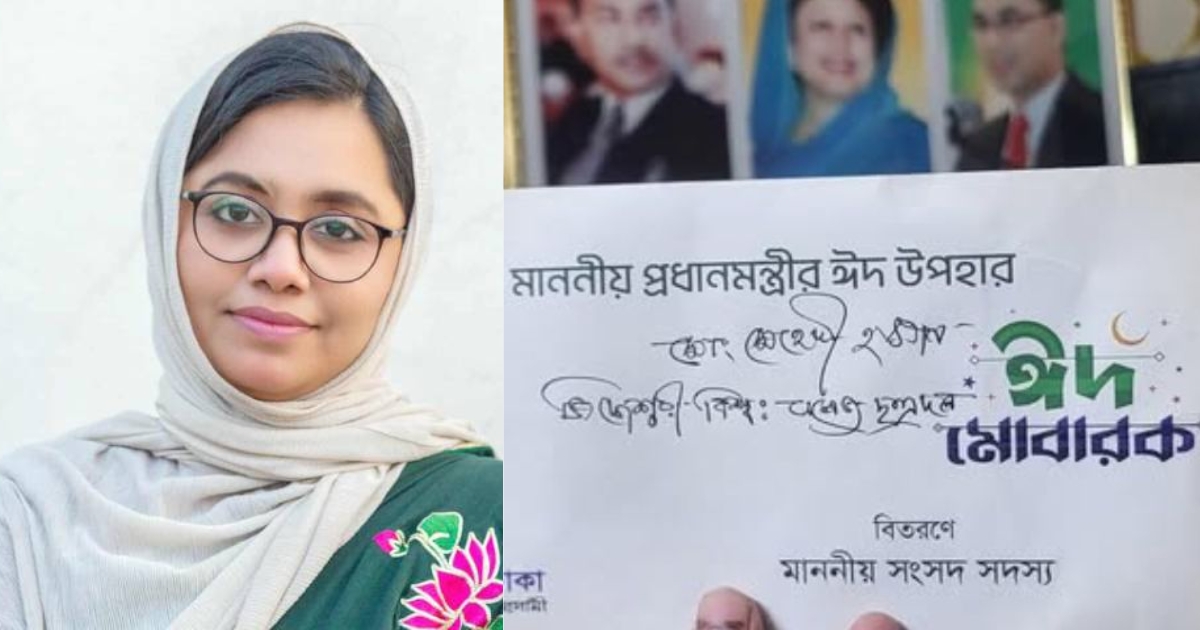 মাননীয় প্রধানমন্ত্রীর ঈদ উপহার
মোঃ মেহেদী হাসান
ঈদ
মোবারক
বিতরণে
মাননীয় সংসদ সদস্য